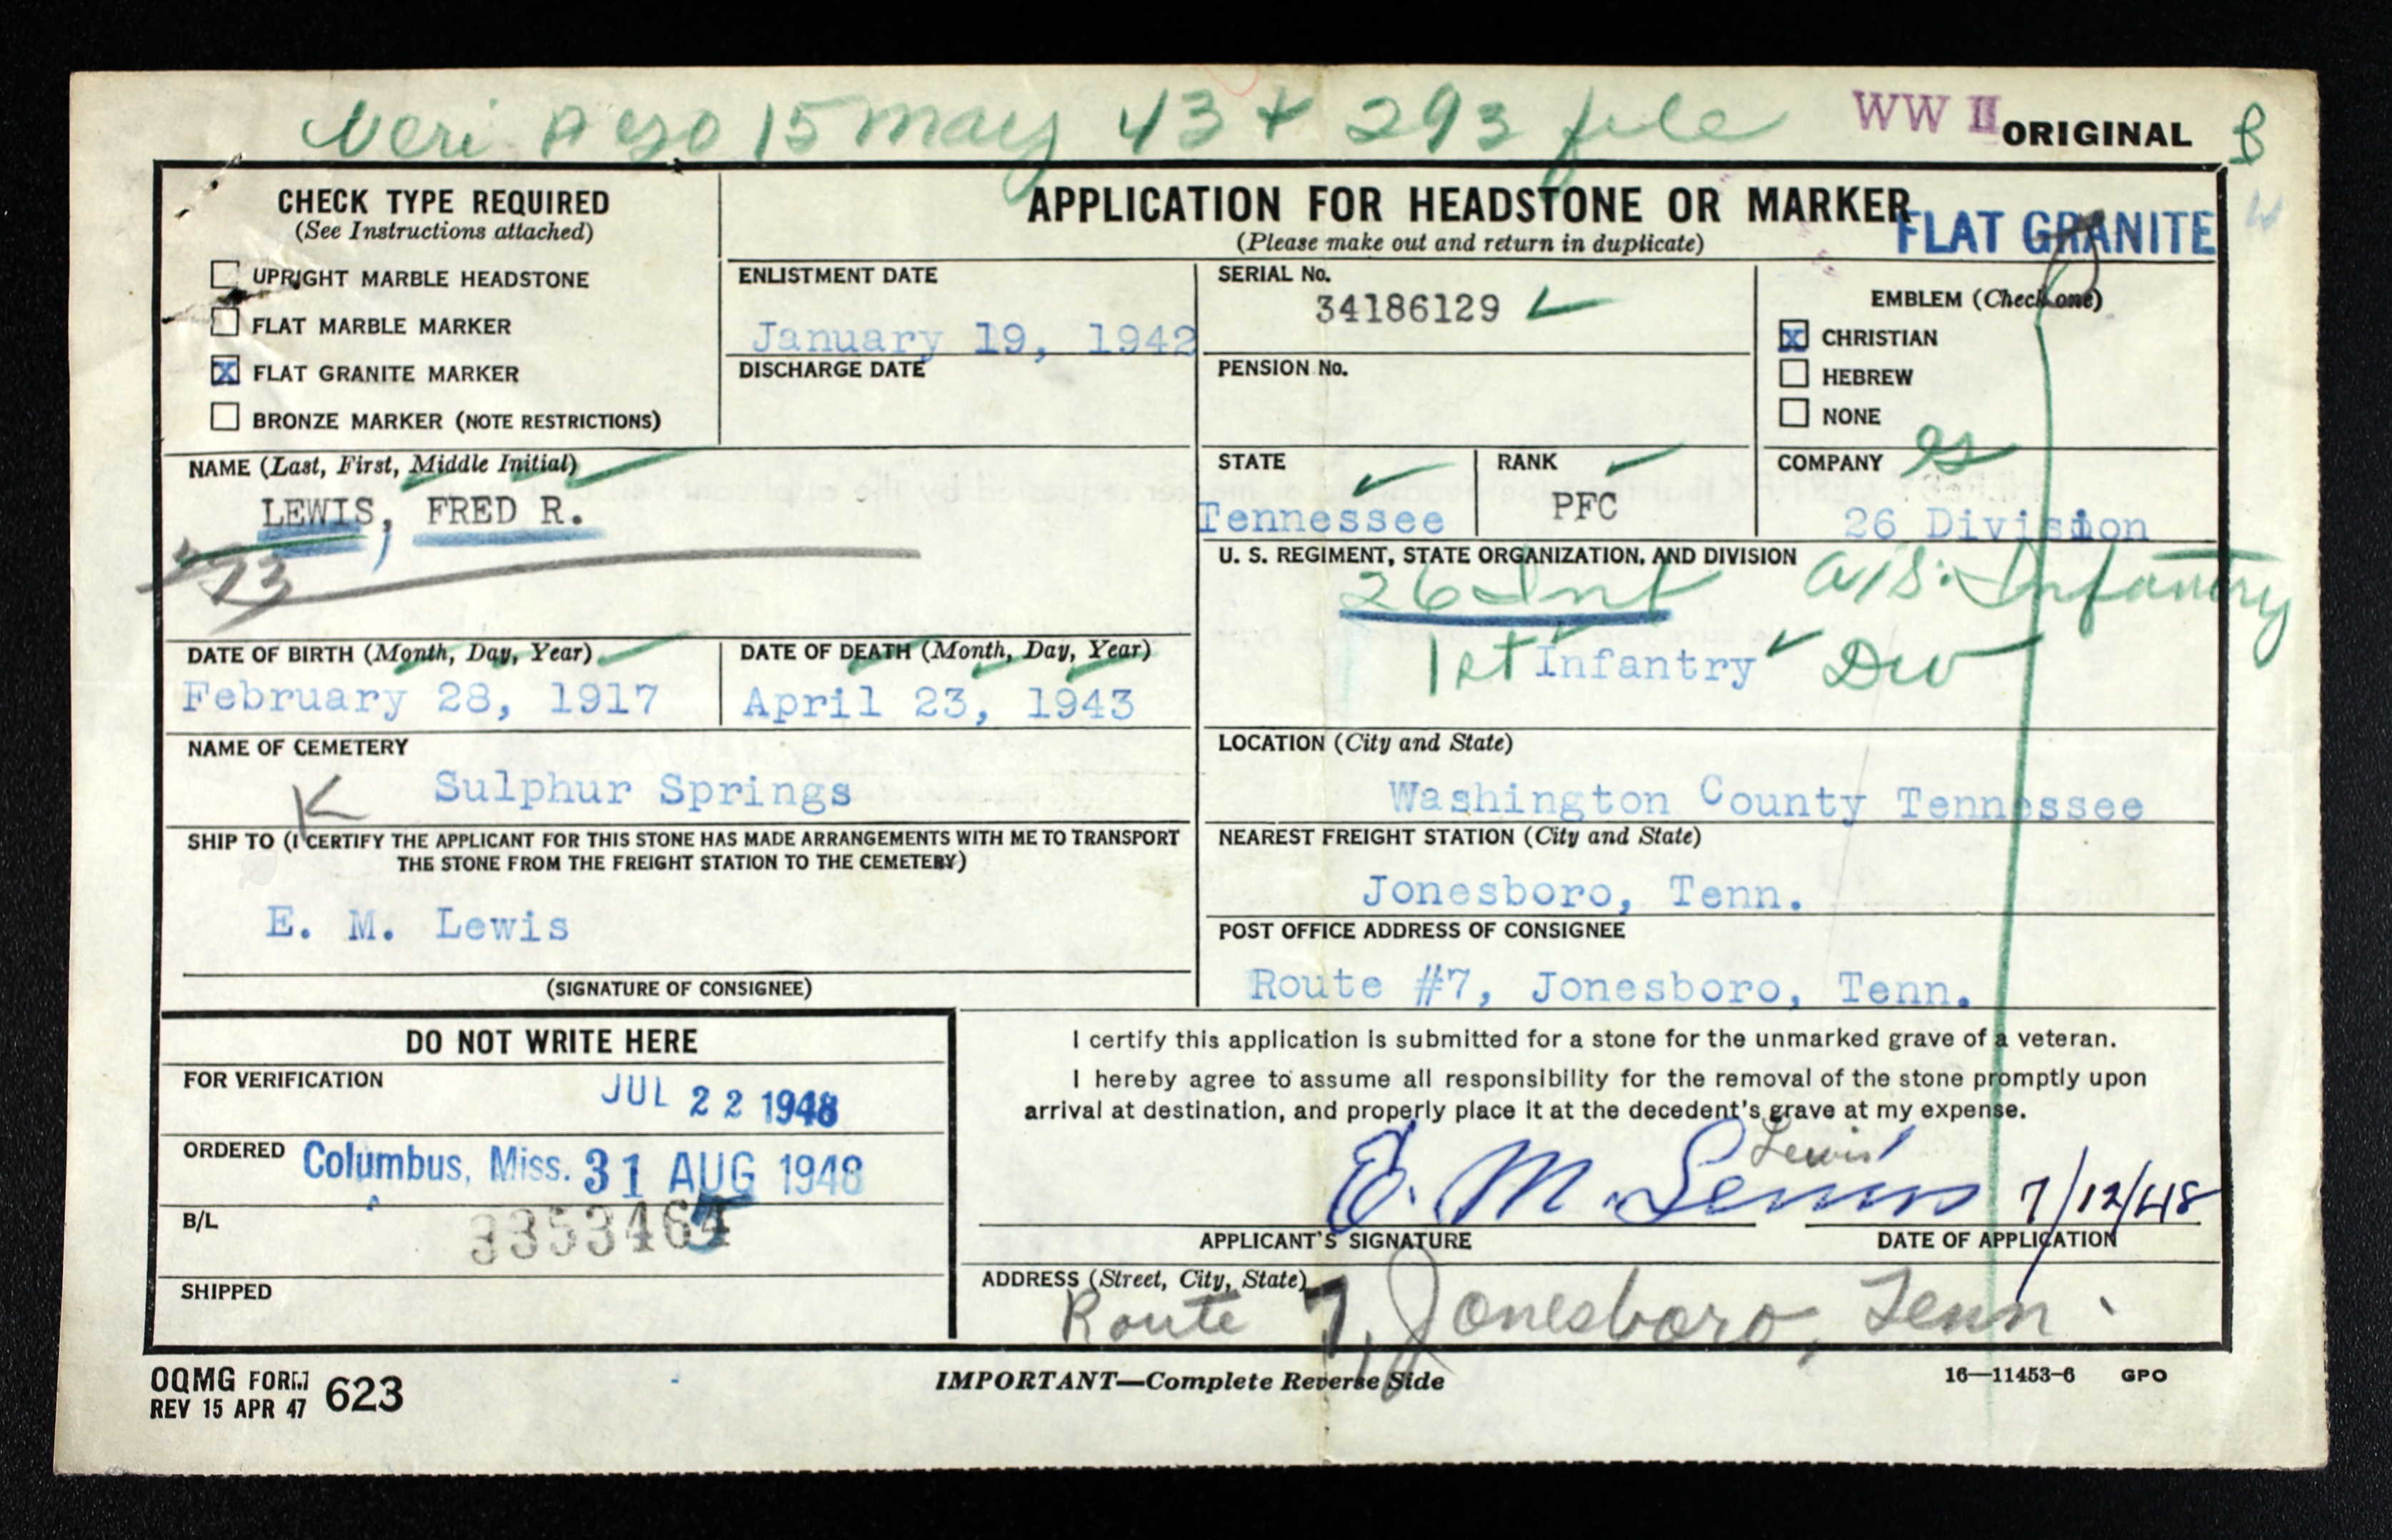 Veri Ago 15 May 43 + 293 file
WW II
ORIGINAL
B
CHECK TYPE REQUIRED
(See Instructions attached)
UPRIGHT MARBLE HEADSTONE
FLAT MARBLE MARKER
X FLAT GRANITE MARKER
BRONZE MARKER (NOTE RESTRICTIONS)
APPLICATION FOR HEADSTONE OR MARKER
(Please make out and return in duplicate)
FLAT GRANITE
ENLISTMENT DATE
January 19, 1942
DISCHARGE DATE
SERIAL No.
34186129
PENSION No.
EMBLEM (Check one)
X CHRISTIAN
HEBREW
NONE
NAME (Last, First, Middle Initial)
LEWIS, FRED R.
STATE
Tennessee
RANK
PFC
COMPANY
26 Division
U. S. REGIMENT, STATE ORGANIZATION, AND DIVISION
26 Inf
Infantry
1st Infantry Div
DATE OF BIRTH (Month, Day, Year)
February 28, 1917
DATE OF DEATH (Month, Day, Year)
April 23, 1943
NAME OF CEMETERY
K Sulphur Springs
LOCATION (City and State)
Washington County Tennessee
SHIP TO (I CERTIFY THE APPLICANT FOR THIS STONE HAS MADE ARRANGEMENTS WITH ME TO TRANSPORT
THE STONE FROM THE FREIGHT STATION TO THE CEMETERY)
E. M. Lewis
(SIGNATURE OF CONSIGNEE)
NEAREST FREIGHT STATION (City and State)
Jonesboro, Tenn.
POST OFFICE ADDRESS OF CONSIGNEE
Route #7, Jonesboro, Tenn.
DO NOT WRITE HERE
FOR VERIFICATION
JUL 22 1948
ORDERED
Columbus, Miss. 31 AUG 1948
B/L
SHIPPED
I certify this application is submitted for a stone for the unmarked grave of a veteran.
I hereby agree to assume all responsibility for the removal of the stone promptly upon
arrival at destination, and properly place it at the decedent's grave at my expense.
Lewis
E. M. Lewis 7/12/48
APPLICANT'S SIGNATURE
DATE OF APPLICATION
ADDRESS (Street, City, State)
Route 7, Jonesboro, Tenn.
OQMG FORM 623
REV 15 APR 47
IMPORTANT—Complete Reverse Side
16—11453-6 GPO